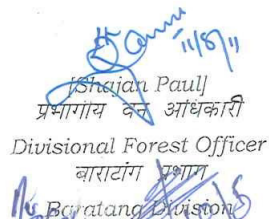 11/8/11
[Shajan Paul]
प्रभागीय वन अधिकारी
Divisional Forest Officer
बाराटांग प्रभाग
Baratang Division